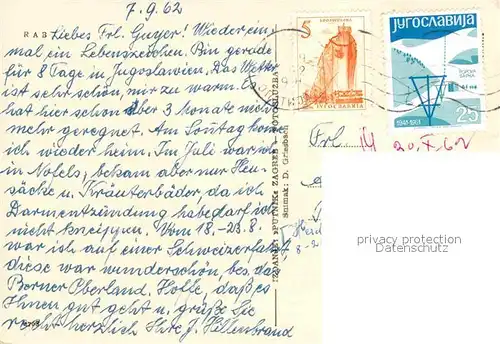 7.9.62
RAB
Liebes Frl. Guyer! Wieder ein-
mal ein Lebenszeichen. Bin gerade
für 8 Tage in Jugoslawien. Das Wetter
ist sehr schön, nur zu warm. Es
hat hier schon über 3 Monate nicht
mehr geregnet. Am Sonntag komme
ich wieder heim. Im Juli war ich
in Nobels, bekam aber nur Heu-
säcke u. Kräuterbäder, da ich
Darmentzündung habe darf ich
nicht kneippen. Vom 18.-23.8.
war ich auf einer Schweizerfahrt
diese war wunderschön, bes. das
Berner Oberland. Hoffe, daß es
Ihnen gut geht u. grüße Sie
recht herzlich Ihre J. Hillenbrand
IZDANJE: »PUTNIK« ZAGREB — FOTOSLUŽBA
Snimak: D. Griesbach
5
JUGOSLAVIJA
ЈУГОСЛАВИЈА
1941-1961
25
Frl
20.X.62
privacy protection
Datenschutz